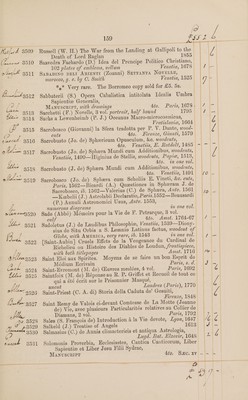 159
3509 Russell (W. H.) The War from the Landing at Gallipoli to the
Death of Lord Raglan 1855
3510 Saavedra Faxhardo (D.) Idea del Principe Politico Christiano,
102 plates of emblems, vellum Venetia, 1678
3511 SABADINO DEGI ARIENTI (Zoane) SETTANTA NOVELLE,
morocco, g. e. by C. Smith Venetia, 1525
*** Very rare. The Borromeo copy sold for £3. 5s.
3512 Sabbaterii (S.) Opera Cabalistica intitolata Lucida Umbra
Sapientiæ Generalis,
MANUSCRIPT, with drawings 4to. Paris, 1678
3513 Sacchetti (F.) Novelle, 2 vol. portrait, half bound 1795
3514 Sachs a Lewenhaimb (P. J.) Oceanus Macro-microcosmicus,
Vratislaviæ, 1664
3515 Sacrobosco (Giovanni) la Sfera tradotta per P. T. Dante, wood-
cuts 4to. Firenze, Giunti, 1579
3516 Sacrobusto (Jo. de) Sphæricum Opusculum, bl. woodcuts,
4to. Venetia, E. Ratdolt, 1485
3517 Sacrobusto (Jo. de) Sphæra Mundi cum Additionibus, woodcuts,
Venetiis, 1490—Hyginius de Stellis, woodcuts, Papie, 1513,
4to. in one vol.
3518 Sacrobusto (J. de) Sphæra Mundi cum Additionibus, woodcuts,
4to. Venetiis, 1491
3519 Sacrobusco (Jo. de) Sphæra cum Scholiis E. Vineti, &c. cuts,
Paris, 1562—Blancii (A.) Quæstiones in Sphæram J. de
Sacrobosco, ib. 1562—Valerius (C.) de Sphæra, Antv. 1565
—Kœbelii (J.) Astrolabii Declaratio, Paris. 1552—Roussardi
(F.) Annuli Astronomici Usus, Antv. 1553,
numerous diagrams in one vol.
3520 Sade (Abbé) Mémoire pour la Vie de F. Petrarque, 3 vol.
4to. Amst. 1764-67
3521 Sadoletus (J.) de Laudibus Philosophiæ, Venetiis, 1539—Nunq-
eius de Situ Orbis a S. Lemnio Latinus factus, woodcut of
Globe, with Autograph, very rare, ib. 1543 in one vol.
3522 (Saint-Aubin) Cruels Effets de la Vengeance du Cardinal de
Richelieu ou Histoire des Diables de Loudun, frontispiece,
with book titlepage Amst. 1716
3523 Saint Hai aux Spiritus. Moyens de se faire un bon Esprit de
Medium Ecrivain Paris, s. d.
3524 Saint-Evremont (M. de) Œuvres meslées, 4 vol Paris, 1692
3525 Saintfoix (M. de) Réponses au R. P. Griffet et Recueil de tout ce
qui a été écrit sur le Prisonnier Masqué,
uncut Londres (Paris), 1770
3526 Saint-Priest (C. A. di) Storia della Caduta de' Gesuiti,
Firenze, 1848
3527 Saint Remy de Valois ci-devant Comtesse de La Motte (Jeanne
de) Vie, avec plusieurs Particularités relatives au Collier de
Diamans, 2 vol. Paris, 1792
3528 Sales (S. François de) Introduction à la Vie dévote, Lyon, 1647
3529 Salkeld (J.) Treatise of Angels 1613
3530 Salmasius (C.) de Annis climactericis et antiqua Astrologia,
Lugd. Bat. Elzevir, 1648
3531 Salomonis Proverbia, Ecclesiastes, Cantica Canticorum, Liber
Sapientiæ et Liber Jesu Filii Sydrac,
MANUSCRIPT 4to. SÆC. XV